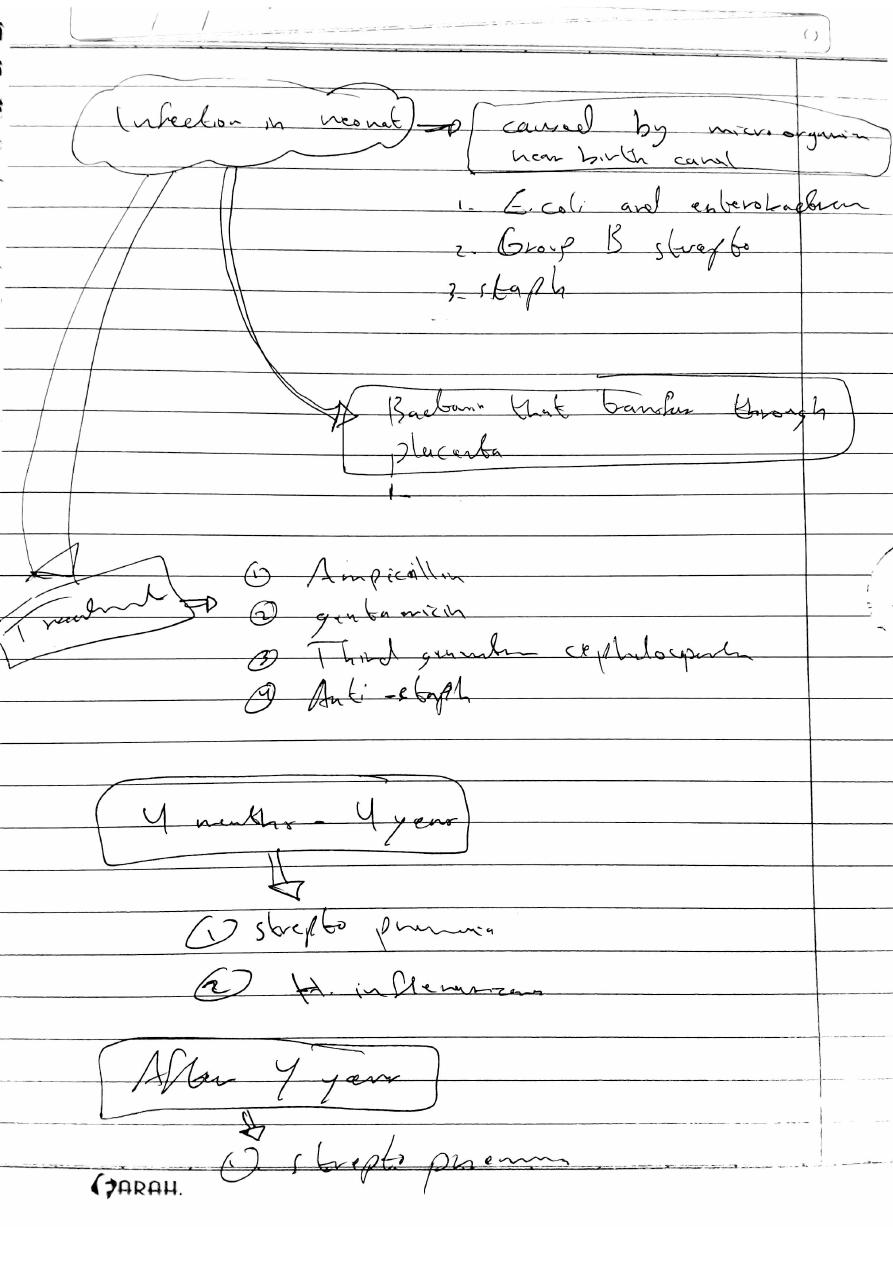 Infection in neonat
caused by microorganism
near birth canal
1. E.coli and enterobacterium
2. Group B strepto
3- staph
Bacteria that transfer through
placenta
1-
Treatment
① Ampicillin
② gentamicin
③ Third generation cephalosporin
④ Anti-staph
4 months - 4 year
① strepto pneumonia
② H. influenza
After 4 year
① strepto pneumonia
SARAH.